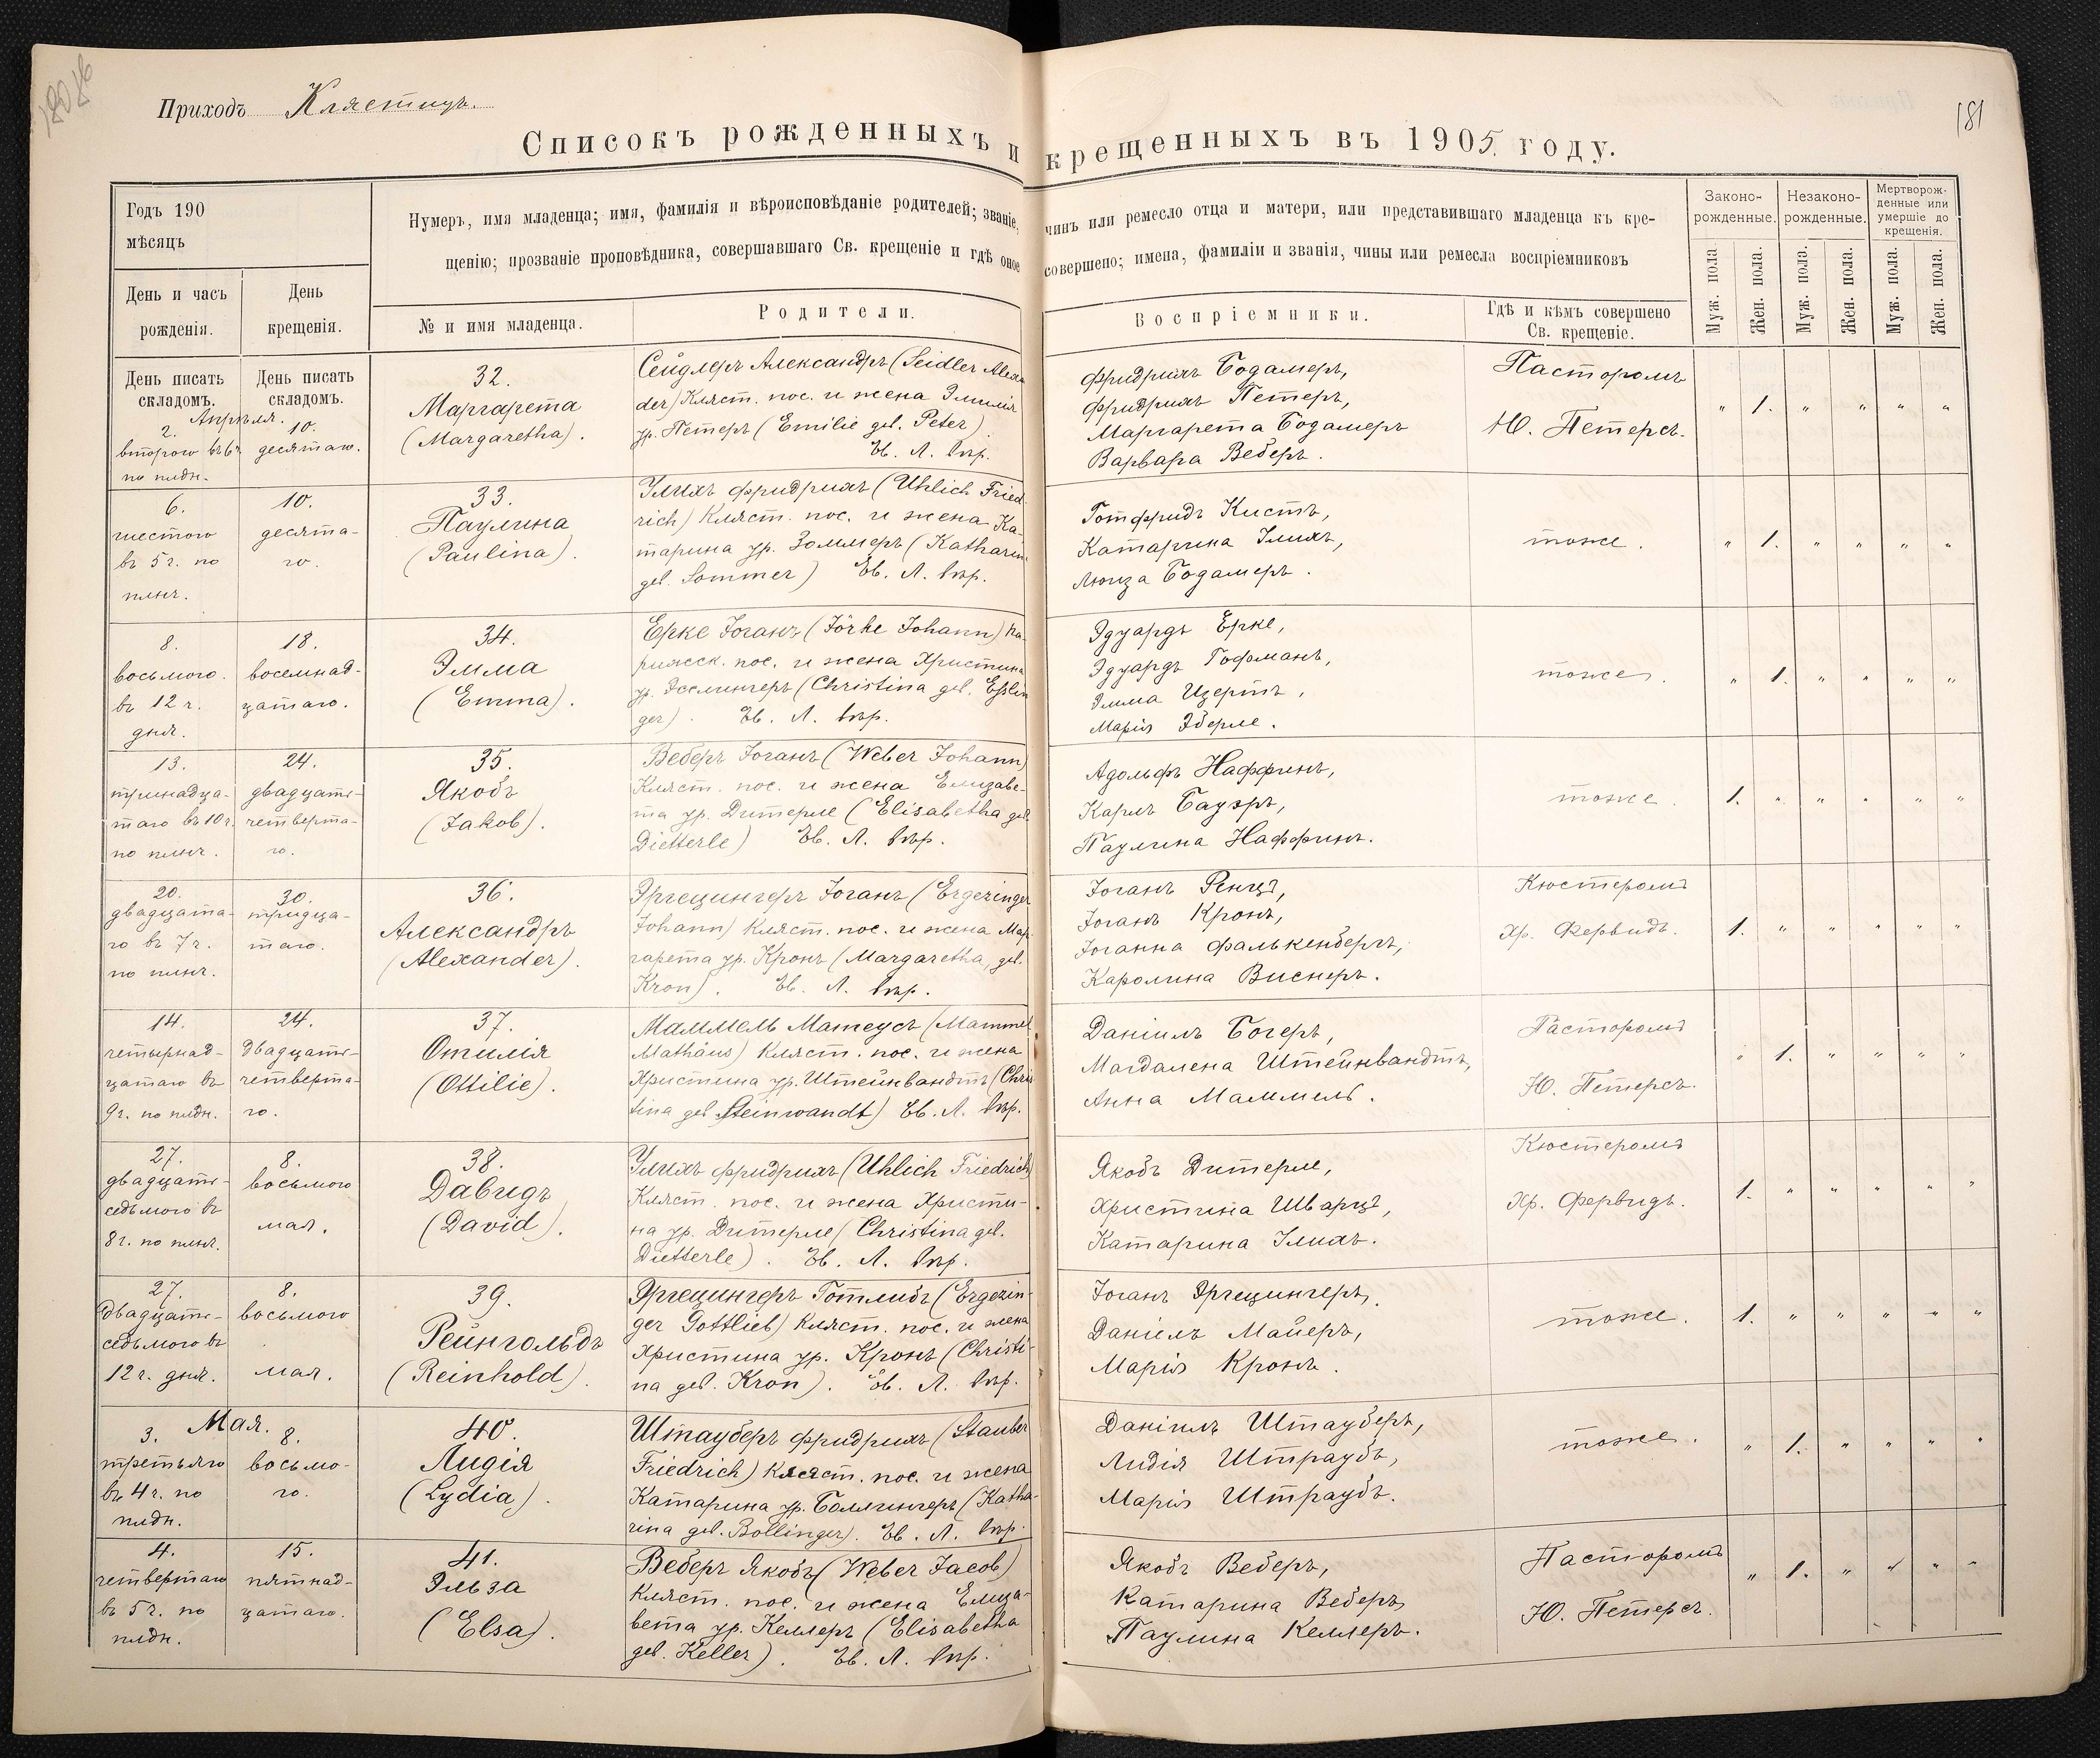 180 об
181
Приходъ Клястицъ.
Списокъ рожденныхъ и крещенныхъ въ 1905. году.
Годъ 190
мѣсяцъ
День и часъ
рожденія.
День
крещенія.
Нумеръ, имя младенца; имя, фамилія и вѣроисповѣданіе родителей; званіе, чинъ или ремесло отца и матери, или представившаго младенца къ кре-
щенію; прозваніе проповѣдника, совершавшаго Св. крещеніе и гдѣ оное совершено; имена, фамиліи и званія, чины или ремесла воспріемниковъ
№ и имя младенца.
Родители.
Воспріемники.
Гдѣ и кѣмъ совершено
Св. крещеніе.
Законо-
рожденные.
Незаконо-
рожденные.
Мертворож-
денные или
умершіе до
крещенія.
Муж. пола
Жен. пола.
Муж. пола.
Жен. пола.
Муж. пола.
Жен. пола.
День писать
складомъ.
День писать
складомъ.
Апрѣля.
2.
второго въ 6 ч.
по плдн.
10.
десятаго.
32.
Маргарета
(Margaretha).
Сейдлеръ Александръ (Seidler Alexan
der) Кляст. пос. и жена Эмилія
ур. Петеръ (Emilie geb. Peter)
Ев. Л. вѣр.
Фридрихъ Бодамеръ,
Фридрихъ Петеръ,
Маргарета Бодамеръ
Варвара Веберъ.
Пасторомъ
Ю. Петерсъ.
" 1. " " " "
6.
шестого
въ 5 ч. по
плнч.
10.
десята-
го.
33.
Паулина
(Paulina).
Улихъ Фридрихъ (Uhlich Fried
rich) Кляст. пос. и жена Ка
тарина ур. Зоммеръ (Katharin
geb. Sommer) Ев. Л. вѣр.
Готфридъ Кистъ,
Катарина Улихъ,
Люиза Бодамеръ.
тоже.
" 1. " " " "
8.
восьмого.
въ 12 ч.
дня.
18.
восемнад-
цатаго.
34.
Эмма
(Emma).
Ерке Іоганъ (Jörke Johann) Па
рижск. пос. и жена Христина
ур. Эсслингеръ (Christina geb. Eßlin
ger). Ев. Л. вѣр.
Эдуардъ Ерке,
Эдуардъ Гофманъ,
Эмма Цертъ,
Марія Эберле.
тоже.
" 1. " " " "
13.
тринадца-
таго въ 10 ч.
по плнч.
24.
двадцать-
четверта-
го.
35.
Якобъ
(Jakob).
Веберъ Іоганъ (Weber Johann)
Кляст. пос. и жена Елизабе-
та ур. Дитерле (Elisabetha geb.
Dietterle) Ев. Л. вѣр.
Адольфъ Наффинъ,
Карлъ Бауэръ,
Паулина Наффинъ.
тоже.
1. " " " " "
20.
двадцата-
го въ 7 ч.
по плнч.
30.
тридца-
таго.
36.
Александръ
(Alexander).
Эргецингеръ Іоганъ (Ergezinger
Johann) Кляст. пос. и жена Мар
гарета ур. Кронъ (Margaretha, geb.
Kron). Ев. Л. вѣр.
Іоганъ Ренцъ,
Іоганъ Кронъ,
Іоганна Фалькенбергъ,
Каролина Виснеръ.
Кюстеромъ
Хр. Фервидъ.
1. " " " " "
14.
четырнад-
цатаго въ
9 ч. по плдн.
24.
двадцать-
четверта-
го.
37.
Отилія
(Ottilie).
Маммель Матеусъ (Mammel
Mathäus) Кляст. пос. и жена
Христина ур. Штейнвандтъ (Chris
tina geb. Steinwandt) Ев. Л. вѣр.
Даніилъ Богеръ,
Магдалена Штейнвандтъ,
Анна Маммель.
Пасторомъ
Ю. Петерсъ.
" 1. " " " "
27.
двадцать-
седьмого въ
8 ч. по плнч.
8.
восьмого
мая.
38.
Давидъ
(David).
Улихъ Фридрихъ (Uhlich Friedrich)
Кляст. пос. и жена Христи-
на ур. Дитерле (Christina geb.
Dietterle). Ев. Л. вѣр.
Якобъ Дитерле,
Христина Шварцъ,
Катарина Улихъ.
Кюстеромъ
Хр. Фервидъ.
1. " " " " "
27.
двадцать-
седьмого въ
12 ч. дня.
8.
восьмого
мая.
39.
Рейнгольдъ
(Reinhold).
Эргецингеръ Готлибъ (Ergezin-
ger Gottlieb) Кляст. пос. и жена
Христина ур. Кронъ (Christi-
na geb. Kron). Ев. Л. вѣр.
Іоганъ Эргецингеръ,
Даніелъ Майеръ,
Марія Кронъ.
тоже.
1. " " " " "
Мая.
3.
третьяго
въ 4 ч. по
плдн.
8.
восьмо-
го.
40.
Лидія
(Lydia).
Штауберъ Фридрихъ (Stauber
Friedrich) Кляст. пос. и жена
Катарина ур. Боллингеръ (Katha-
rina geb. Bollinger). Ев. Л. вѣр.
Даніилъ Штауберъ,
Лидія Штраубъ,
Марія Штраубъ.
тоже.
" 1. " " " "
4.
четвертаго
въ 5 ч. по
плдн.
15.
пятнад-
цатаго.
41.
Эльза
(Elsa).
Веберъ Якобъ (Weber Jacob)
Кляст. пос. и жена Елиза-
бета ур. Келлеръ (Elisabetha
geb. Keller). Ев. Л. вѣр.
Якобъ Веберъ,
Катарина Веберъ,
Паулина Келлеръ.
Пасторомъ
Ю. Петерсъ.
" 1. " " " "